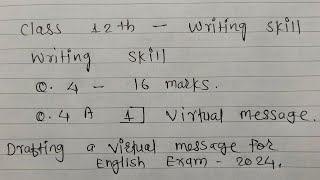 Class 12th - Writing Skill
Writing Skill
Q. 4 - 16 marks.
Q. 4 A 1 Virtual message.
Drafting a Virtual message for
English Exam - 2024.